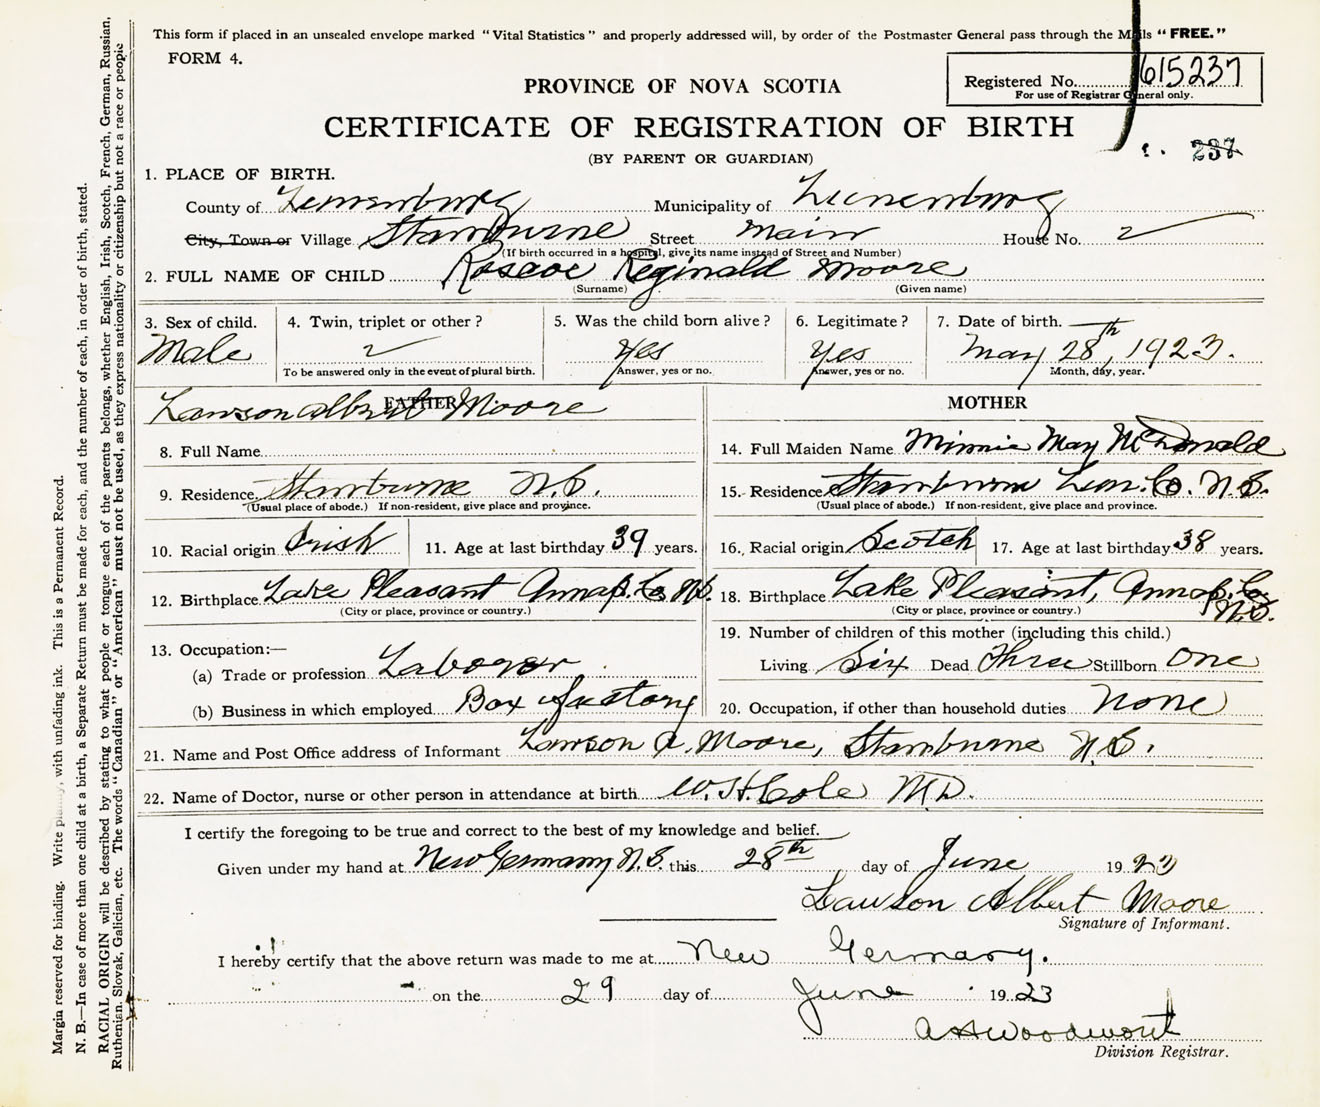 This form if placed in an unsealed envelope marked "Vital Statistics" and properly addressed will, by order of the Postmaster General pass through the Mails "FREE."
FORM 4.
PROVINCE OF NOVA SCOTIA
Registered No. 615237
For use of Registrar General only.
CERTIFICATE OF REGISTRATION OF BIRTH
237
(BY PARENT OR GUARDIAN)
1. PLACE OF BIRTH.
County of Lunenburg Municipality of Lunenburg
City, Town or Village Stanburne Street Main House No.
(If birth occurred in a hospital, give its name instead of Street and Number)
2. FULL NAME OF CHILD Roscoe Reginald Moore
(Surname) (Given name)
3. Sex of child. 4. Twin, triplet or other? 5. Was the child born alive? 6. Legitimate? 7. Date of birth.
Male Yes Yes May 28th, 1923.
To be answered only in the event of plural birth. Answer, yes or no. Answer, yes or no. Month, day, year.
FATHER
Lawson Albert Moore
8. Full Name
9. Residence Stanburne N.S.
(Usual place of abode.) If non-resident, give place and province.
10. Racial origin Irish 11. Age at last birthday 39 years.
12. Birthplace Lake Pleasant Annap. Co. N.S.
(City or place, province or country.)
13. Occupation:—
(a) Trade or profession Laborer
(b) Business in which employed Box factory
MOTHER
14. Full Maiden Name Minnie May McDonald
15. Residence Stanburne Lun. Co. N.S.
(Usual place of abode.) If non-resident, give place and province.
16. Racial origin Scotch 17. Age at last birthday 38 years.
18. Birthplace Lake Pleasant, Annap. Co. N.S.
(City or place, province or country.)
19. Number of children of this mother (including this child.)
Living Six Dead Three Stillborn One
20. Occupation, if other than household duties None
21. Name and Post Office address of Informant Lawson A. Moore, Stanburne N.S.
22. Name of Doctor, nurse or other person in attendance at birth W. H. Cole M.D.
I certify the foregoing to be true and correct to the best of my knowledge and belief.
Given under my hand at New Germany N.S. this 28th day of June 1923
Lawson Albert Moore
Signature of Informant.
I hereby certify that the above return was made to me at New Germany.
on the 29 day of June 1923
Woodworth
Division Registrar.
Margin reserved for binding. Write plainly, with unfading ink. This is a Permanent Record.
N. B.—In case of more than one child at a birth, a Separate Return must be made for each, and the number of each, in order of birth, stated.
RACIAL ORIGIN will be described by stating to what people or tongue each of the parents belongs, whether English, Irish, Scotch, French, German, Russian,
Ruthenian, Slovak, Galician, etc. The words "Canadian" or "American" must not be used, as they express nationality or citizenship but not a race or people